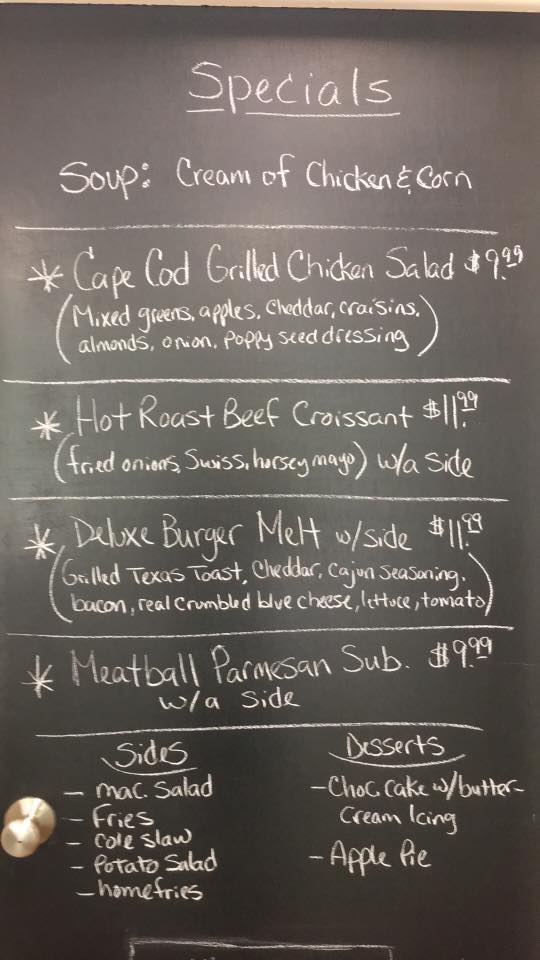 Specials
Soup: Cream of Chicken & Corn
* Cape Cod Grilled Chicken Salad $9.99
(Mixed greens, apples, Cheddar, craisins,
almonds, onion, Poppy seed dressing)
* Hot Roast Beef Croissant $11.99
(fried onions, Swiss, horsey mayo) w/a side
* Deluxe Burger Melt w/side $11.99
(Grilled Texas Toast, Cheddar, Cajun seasoning,
bacon, real crumbled blue cheese, lettuce, tomato)
* Meatball Parmesan Sub. $9.99
w/a side
Sides
- mac. Salad
- Fries
- Cole slaw
- Potato Salad
- homefries
Desserts
- Choc. cake w/butter-
Cream Icing
- Apple Pie